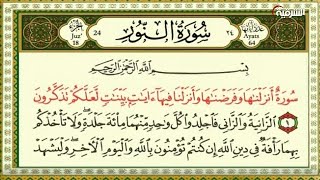 الجزء
Juz'
18
24
سُورَةُ النُّورِ
٢٤
Ayats
64
بِسْمِ اللَّهِ الرَّحْمَٰنِ الرَّحِيمِ
سُورَةٌ أَنزَلْنَٰهَا وَفَرَضْنَٰهَا وَأَنزَلْنَا فِيهَآ ءَايَٰتٍۭ بَيِّنَٰتٍ لَّعَلَّكُمْ تَذَكَّرُونَ
١ الزَّانِيَةُ وَالزَّانِي فَاجْلِدُوا كُلَّ وَٰحِدٍ مِّنْهُمَا مِا۟ئَةَ جَلْدَةٍ وَلَا تَأْخُذْكُم
بِهِمَا رَأْفَةٌ فِي دِينِ اللَّهِ إِن كُنتُمْ تُؤْمِنُونَ بِاللَّهِ وَالْيَوْمِ الْآخِرِ وَلْيَشْهَدْ